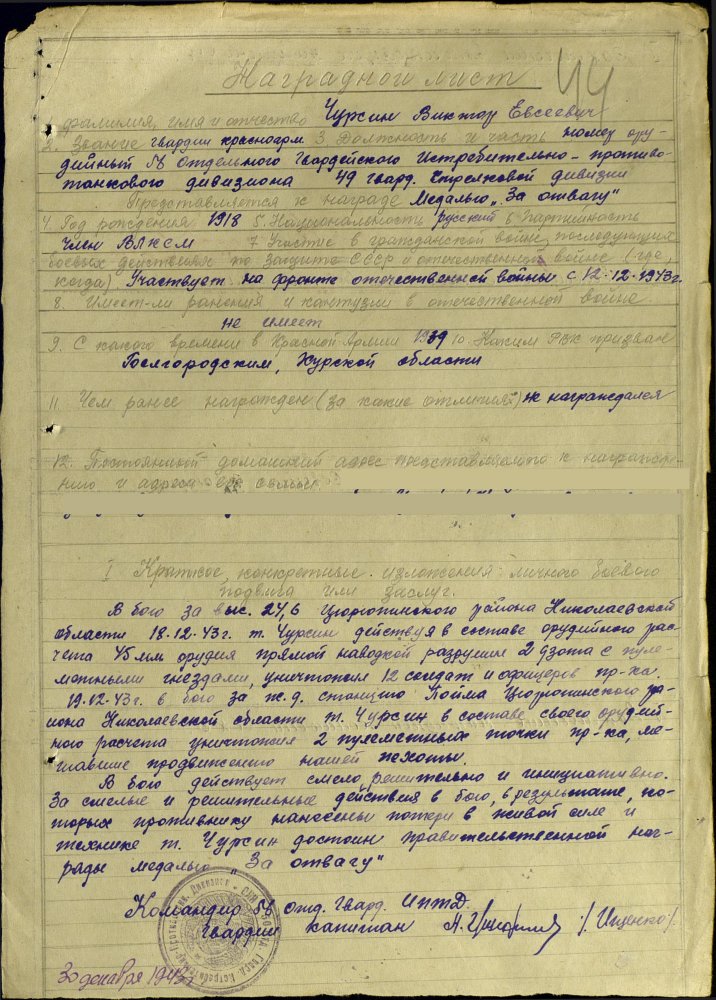 Наградной лист 44
фамилия, имя и отчество Чурсин Виктор Евсеевич
2. Звание гвардии красноарм 3. Должность и часть номер ору-
дийный 56 Отдельного Гвардейского Истребительно-противо-
танкового дивизиона 49 гвард. Стрелковой дивизии
Представляется к награде Медалью „За отвагу"
4. Год рождения 1918 5. Национальность русский 6 Партийность
член ВЛКСМ 7 Участие в гражданской войне, последующих
боевых действиях по защите СССР и отечественной войне (где,
когда) Участвует на фронте отечественной войны с 12-12-1943г.
8. Имеет-ли ранения и контузии в отечественной войне
не имеет
9. С какого времени в Красной Армии 1939 10. Каким РВК призван
Курской области
11. Чем ранее награжден (за какие отличия) не награждался
12. Постоянный домашний адрес представляемого к награжде-
нию и адрес его семьи
I Краткое, конкретные изложения личного боевого
подвига или заслуг.
В бою за выс. 24,6 Цюрюпинского района Николаевской
области 18.12.43г. т. Чурсин действуя в составе орудийного рас-
чета 45 мм орудия прямой наводкой разрушил 2 дзота с пуле-
метными гнездами, уничтожил 12 солдат и офицеров пр-ка.
19.12.43г. в бою за ж.д. станцию Пойма Цюрюпинского ра-
иона Николаевской области т. Чурсин в составе своего орудий-
ного расчета уничтожил 2 пулеметных точки пр-ка, ме-
шавшие продвижению нашей пехоты.
В бою действует смело, решительно и инициативно.
За смелые и решительные действия в бою, в результате, ко-
торых противнику нанесены потери в живой силе и
технике т. Чурсин достоин правительственной наг-
рады медалью „За отвагу"
Командир 56 отд. Гвард. ИПТД
Гвардии капитан /Ищенко/
30 декабря 1943г